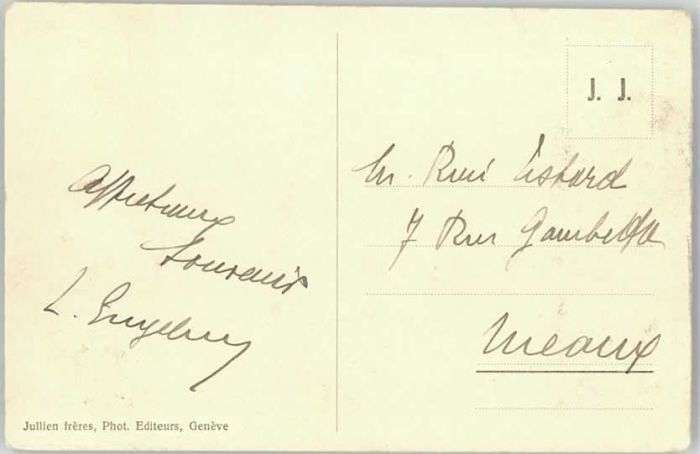 Affectueux
Souvenir
L. Engelmy
J. J.
M. René Listard
7 Rue Gambetta
Meaux
Jullien frères, Phot. Editeurs, Genève